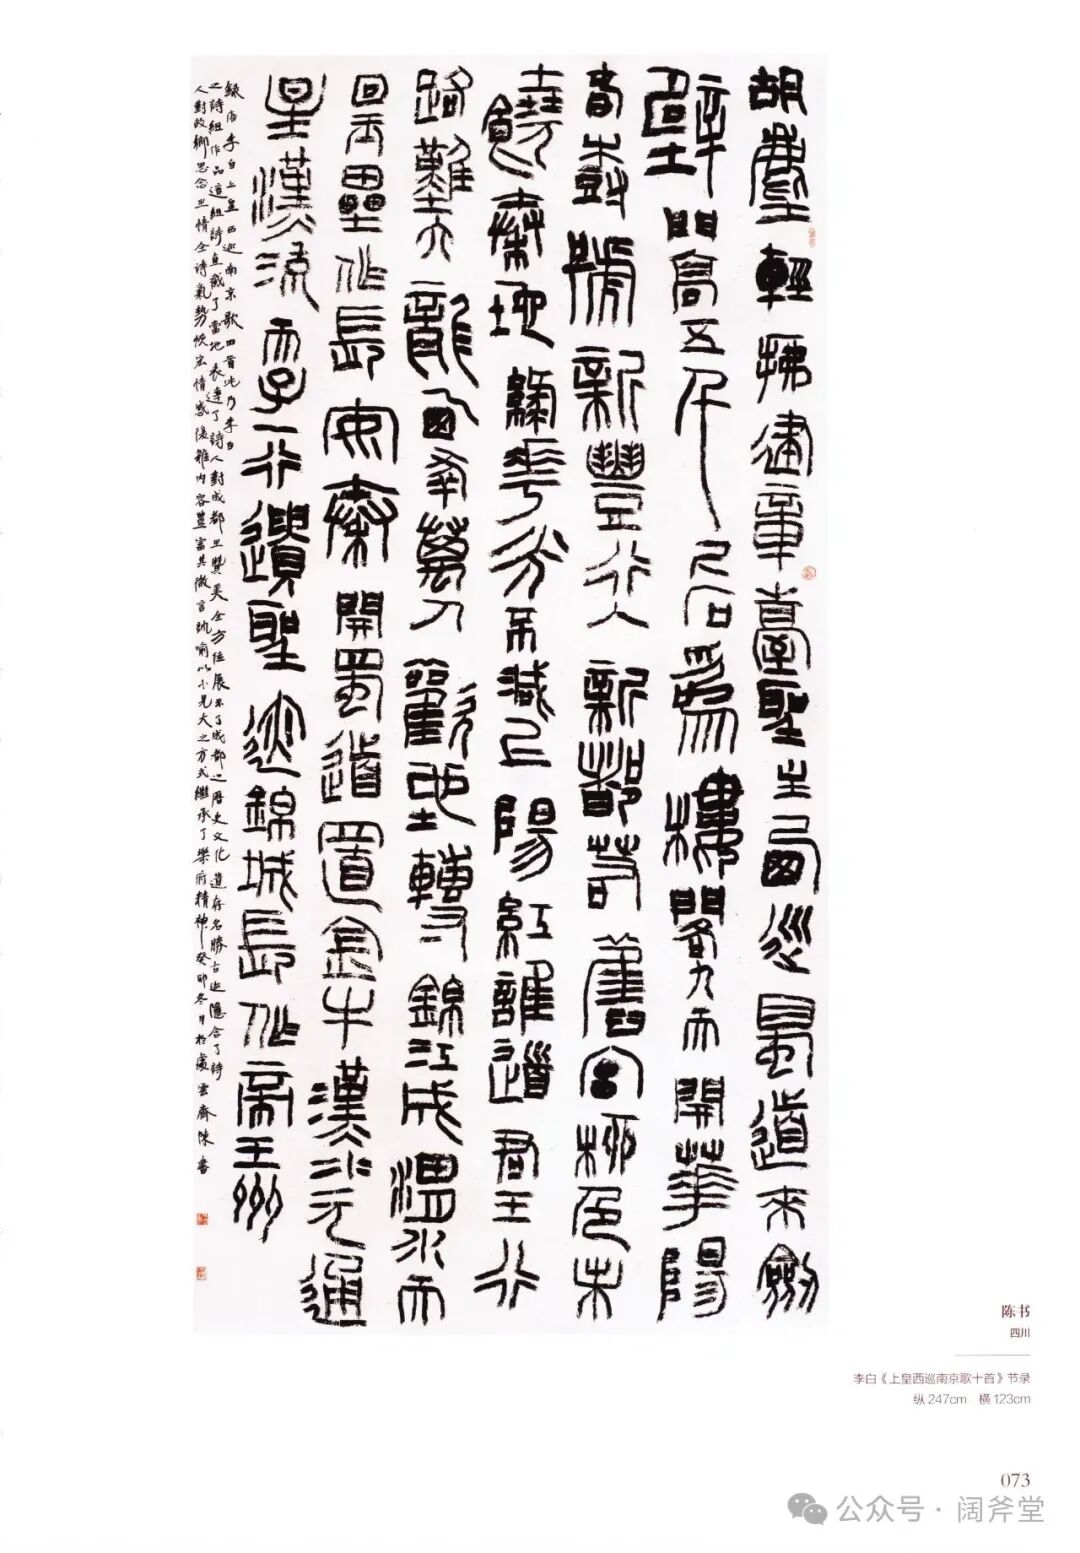 胡塵輕拂建章臺聖主西巡蜀道來劍
壁門高五千尺石為樓閣九天開華陽
春樹號新豐行入新都若舊宮柳色未
饒秦地綠花光不減上陽紅誰道君王行
路難六龍西幸萬人歡地轉錦江成渭水天
回玉壘作長安秦開蜀道置金牛漢水元通
星漢流天子一行遺聖迹錦城長作帝王州
錄唐李白上皇西巡南京歌四首此乃李白
之詩組作品這組詩直截了當地表達了詩人對成都之贊美全方位展示了成都之歷史文化遺存名勝古迹隱含了詩
人對故鄉思念之情全詩氣勢恢宏情感復雜內容豐富其微言諷喻以小見大之方式繼承了樂府精神癸卯冬月於雲齋陳書
陈书
四川
李白《上皇西巡南京歌十首》节录
纵247cm 横123cm
073
公众号·阔斧堂